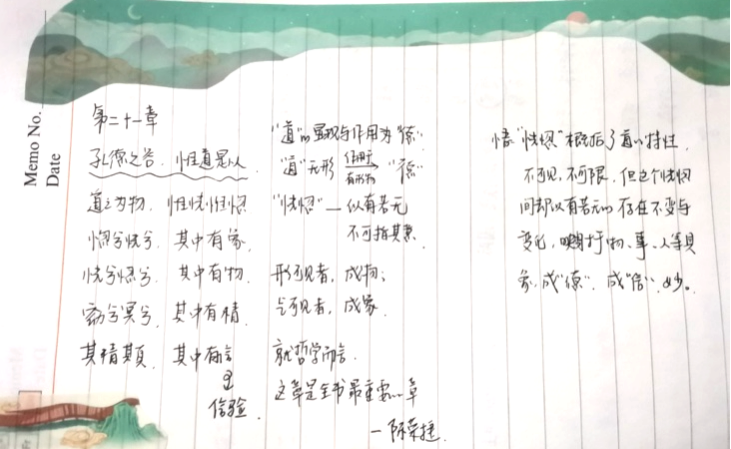 Memo No.
Date
第二十一章
孔德之容，惟道是从
道之为物，惟恍惟惚
惚兮恍兮，其中有象
恍兮惚兮，其中有物
窈兮冥兮，其中有精
其精甚真，其中有信
信验
"道"的显现与作用为"德"
"道"无形 作用于 有形物 "德"
"恍惚"—似有若无
不可指其象
形可见者，成物；
气可见者，成象
就哲学而言
这章是全书最重要的一章
—陈荣捷
悟："恍惚"概括了道的特性，
不可见，不可限，但这个恍惚
间却似有若无的存在不变与
变化，映射于物、事、人等具
象，成"德"，成"信"，妙。